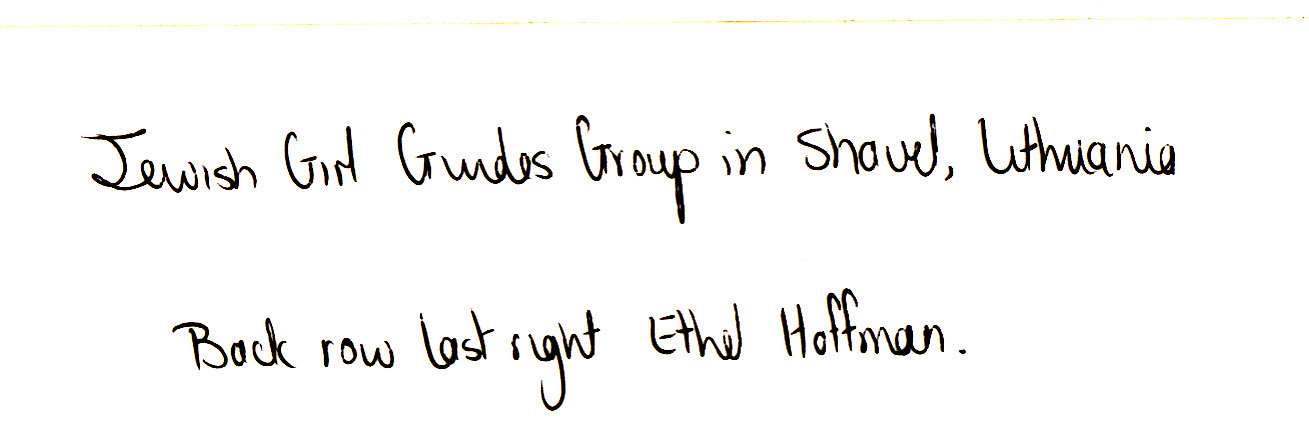 Jewish Girl Guides Group in Shavel, Lithuania
Back row last right Ethel Hoffman.